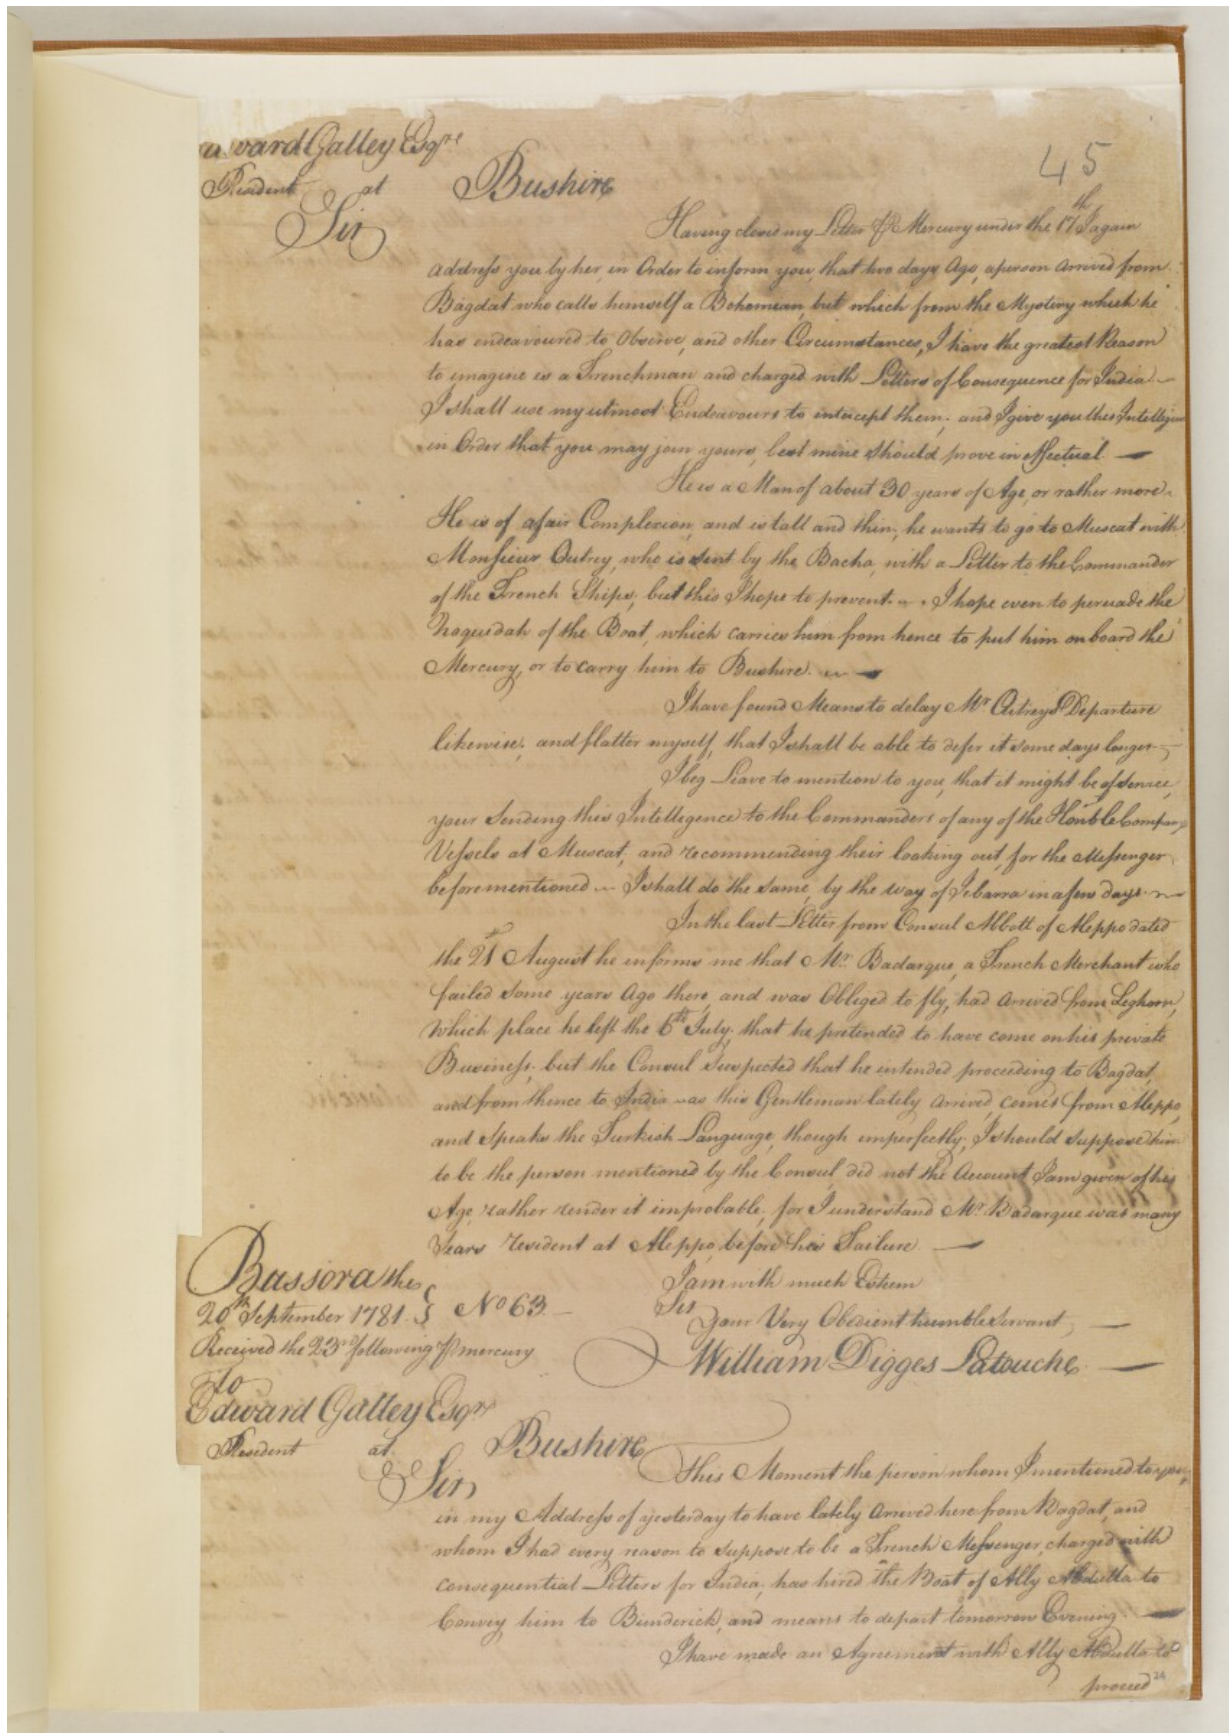 Edward Galley Esqre
45
Resident at Bushire
Sir
Having closed my Letter Mercury under the 17th I again
address you by her, in Order to inform you, that two days Ago, a person arrived from
Bagdat who calls himself a Bohemean, but which from the Mystery which he
has endeavoured to Observe, and other Circumstances, I have the greatest Reason
to imagine is a Frenchman and charged with Letters of Consequence for India —
I shall use my utmost Endeavours to intercept them; and I give you this Intelligen
in Order that you may join yours, lest mine should prove ineffectual —
He is a Man of about 30 years of Age, or rather more.
He is of a fair Complexion, and is tall and thin; he wants to go to Muscat with
Monsieur Outrey, who is sent by the Bacha, with a Letter to the Commander
of the French Ships; but this I hope to prevent. — I hope even to persuade the
Noquedah of the Boat, which carries him from hence to put him on board the
Mercury, or to carry him to Bushire. —
I have found Means to delay Mr Outreys Departure
likewise; and flatter myself, that I shall be able to defer it some days longer —
I beg Leave to mention to you, that it might be of Service,
your sending this Intelligence to the Commanders of any of the Honble Company
Vessels at Muscat, and recommending their looking out, for the Messenger
beforementioned — I shall do the same, by the way of in a few days —
In the last Letter from Consul Abbott of Aleppo dated
the 21st August he informs me that Mr. Badargue, a French Merchant who
failed some years Ago there, and was Obliged to fly, had arrived from Leghorn,
which place he left the 6th July, that he pretended to have come on his private
Business, but the Consul suspected that he intended proceeding to Bagdat,
and from thence to India — as this Gentleman lately arrived, comes from Aleppo,
and speaks the Turkish Language, though imperfectly, I should suppose him
to be the person mentioned by the Consul, did not the Account I am given of his
Age, rather render it improbable; for I understand Mr. Badargue was many
Years resident at Aleppo, before his Failure —
Bassora the
20th September 1781. } No 63 —
Received the 23rd following mercury
I am with much Esteem
Sir
Your Very Obedient humble Servant, —
William Digges Latouche —
To
Edward Galley Esqre
Resident at Bushire
Sir
This Moment the person whom I mentioned to you,
in my Address of yesterday to have lately arrived here from Bagdat, and
whom I had every reason to suppose to be a French Messenger, charged with
consequential Letters for India, has hired the Boat of Ally Abdulla to
Convey him to Bunderick, and means to depart tomorrow Evening. —
I have made an Agreement with Ally Abdulla to
proceed